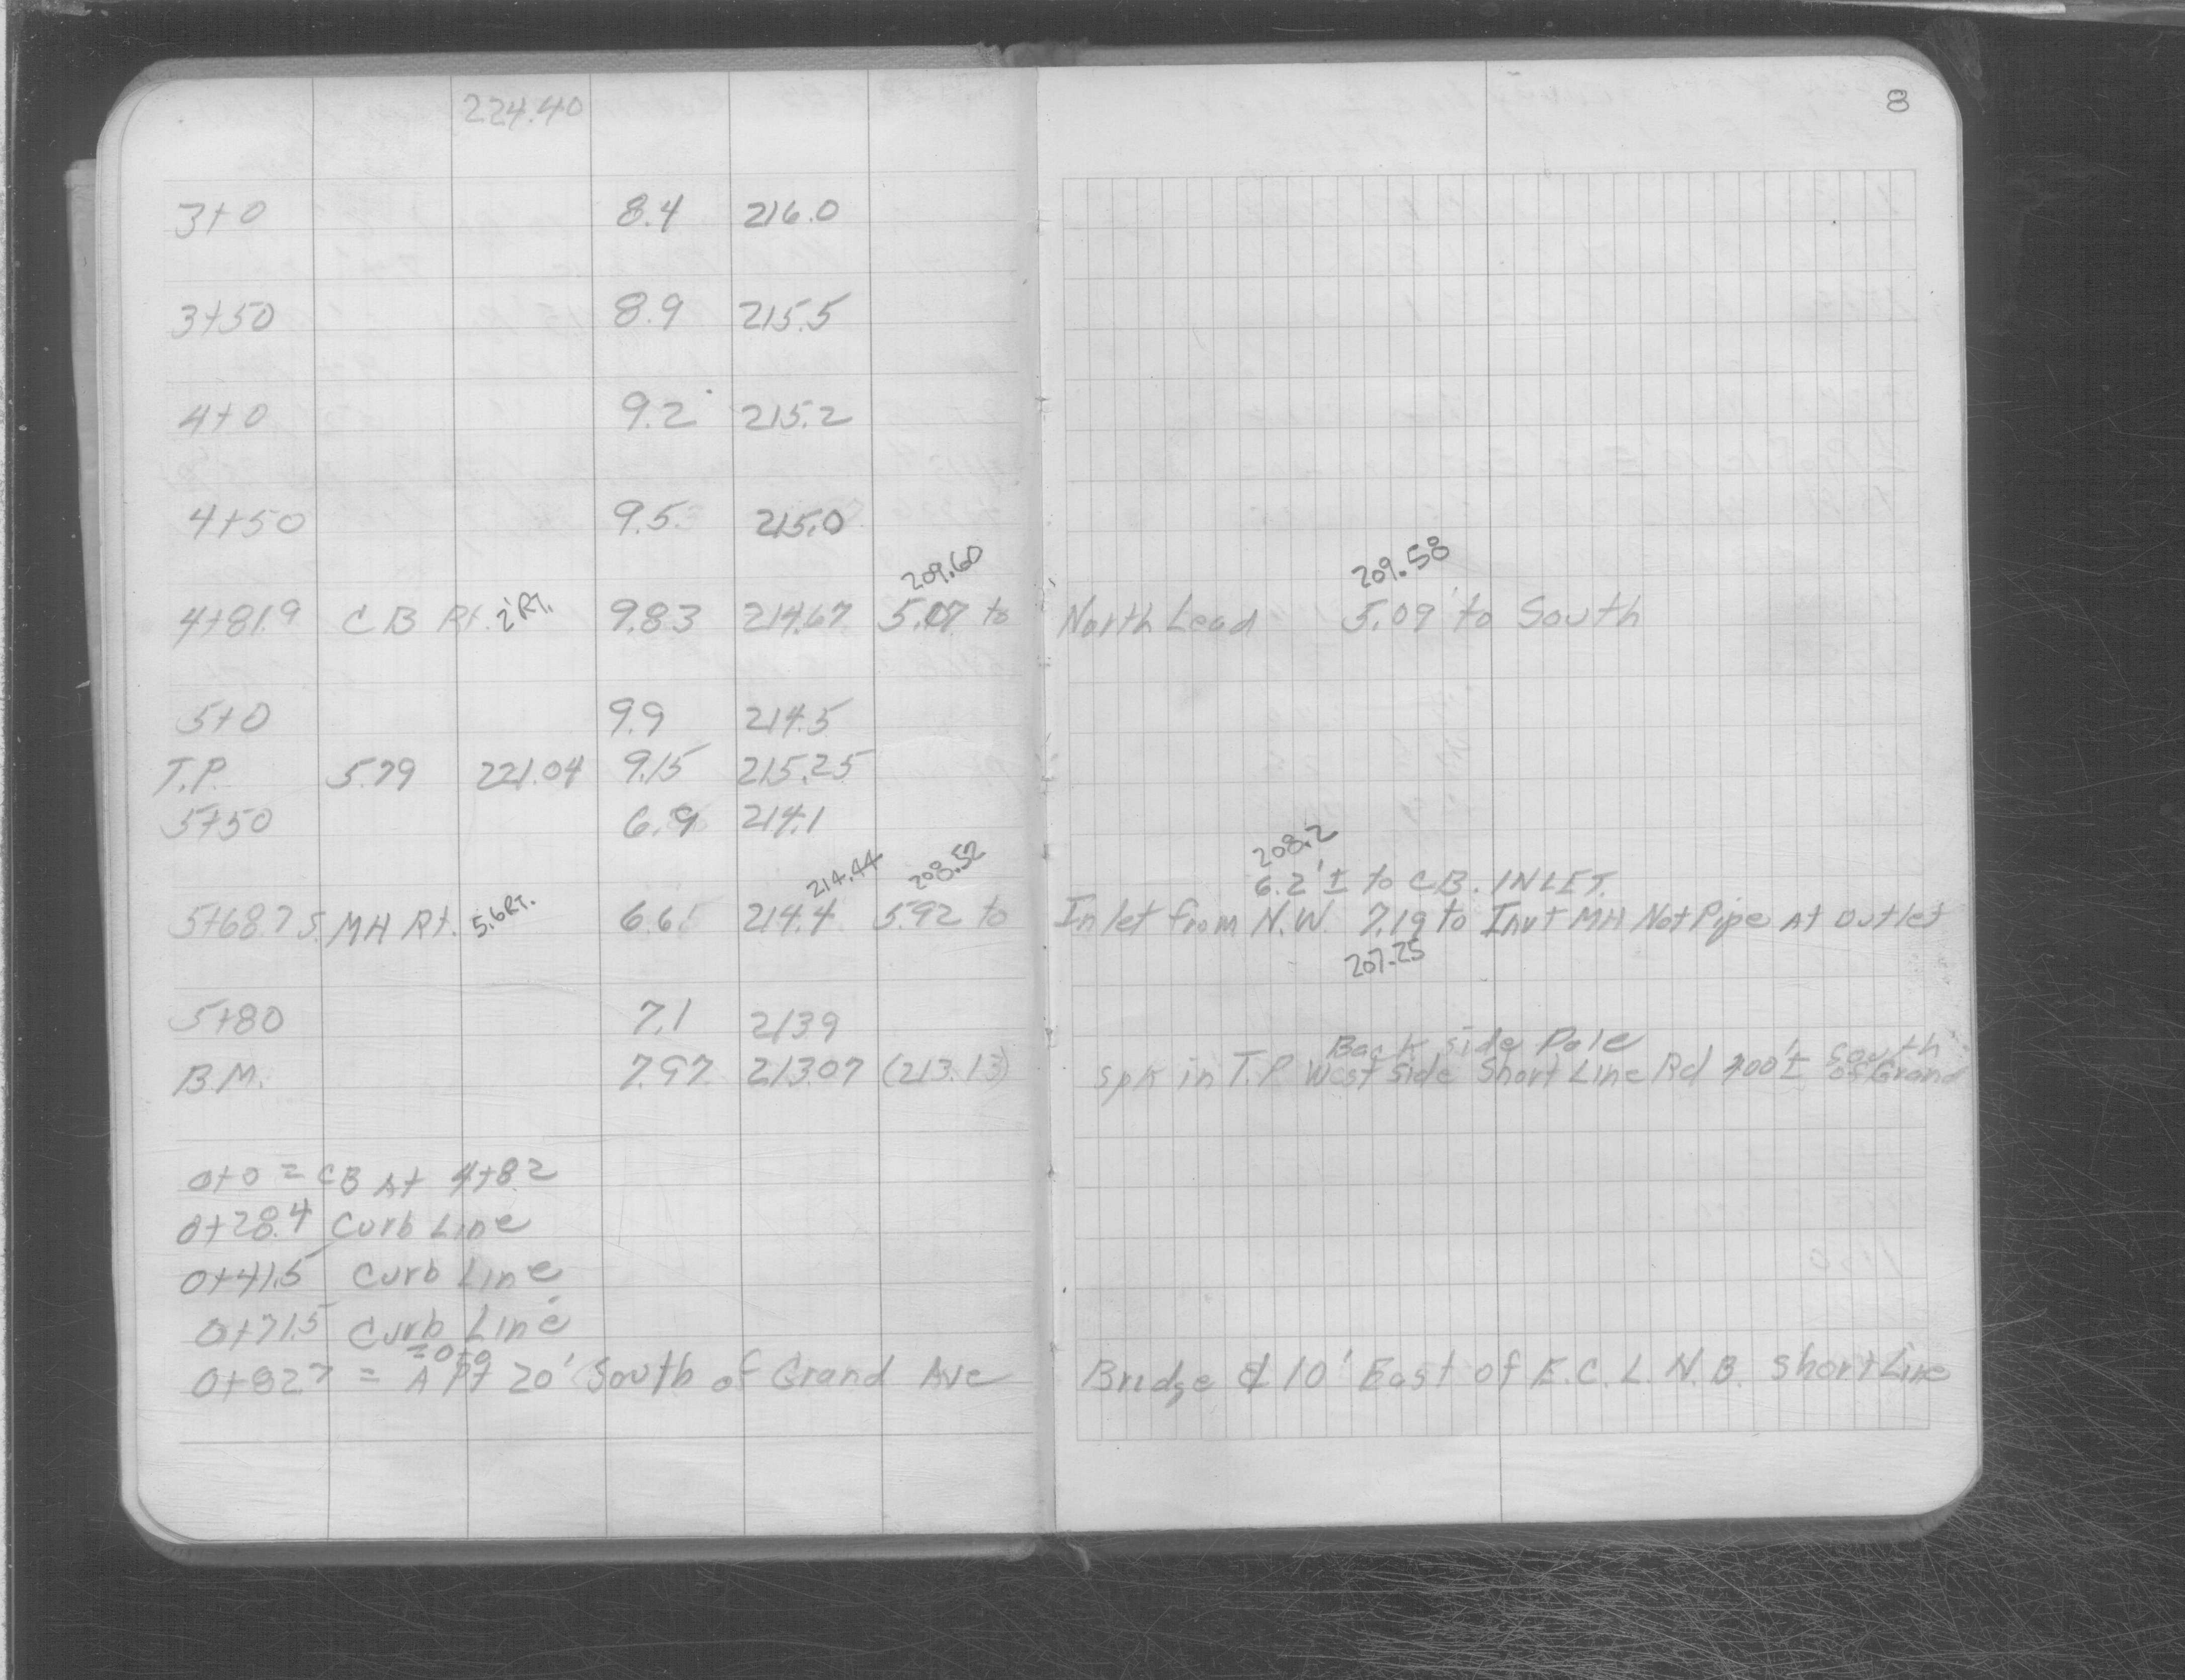 8
224.40
3+0 8.4 216.0
3+50 8.9 215.5
4+0 9.2 215.2
4+50 9.5 215.0
209.60 209.58
4+81.9 C B Rt. 2' RT. 9.83 214.67 5.07 to North Lead 5.09' to South
5+0 9.9 214.5
T.P. 5.79 221.04 9.15 215.25
5+50 6.9 214.1
208.2
214.44 208.52 6.2'± to C.B. INLET.
5+68.7 S. MH Rt. 5.6 RT. 6.6 214.4 5.92 to Inlet from N.W. 7.19 to Invt MH Not Pipe At Outlet
207.25
5+80 7.1 213.9
Back side Pole south
B.M. 7.97 213.07 (213.13) spk in T.P. West side Short Line Rd 400'± of Grand
0+0 = CB At 4+82
0+28.4 Curb Line
0+41.5 Curb Line
0+71.5 Curb Line
=0+0
0+82.7 = A Pt 20' South of Grand Ave Bridge & 10' East of E.C.L. N.B. Short Line